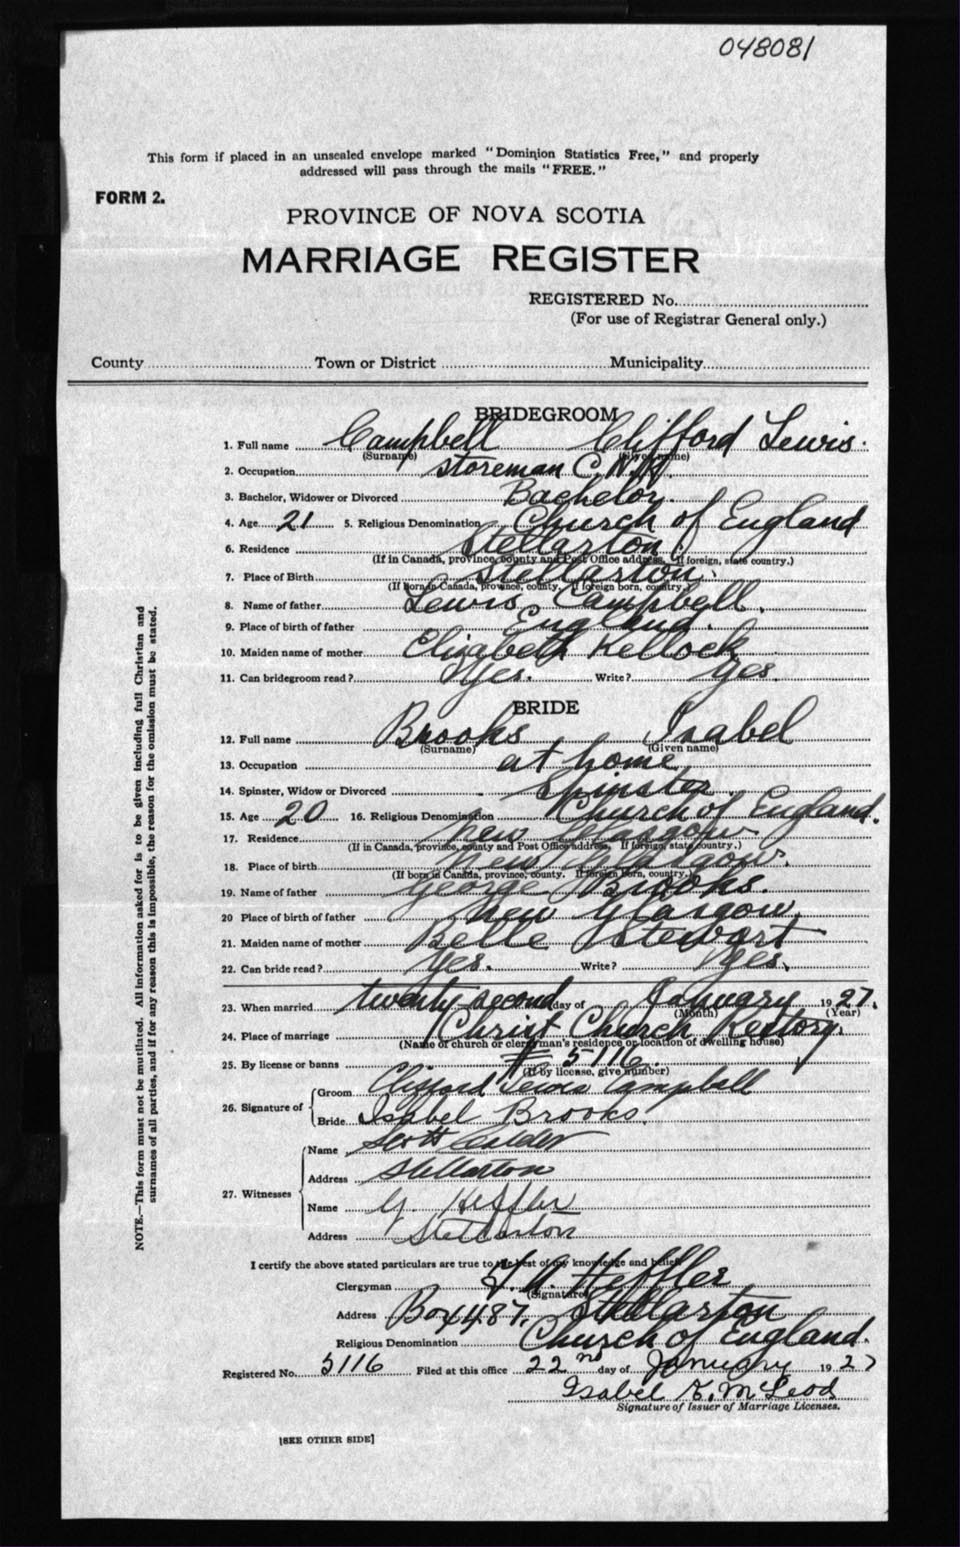 048081
This form if placed in an unsealed envelope marked "Dominion Statistics Free," and properly
addressed will pass through the mails "FREE."
FORM 2.
PROVINCE OF NOVA SCOTIA
MARRIAGE REGISTER
REGISTERED No.
(For use of Registrar General only.)
County Town or District Municipality
BRIDEGROOM
1. Full name Campbell Clifford Lewis.
(Surname) (Given name)
2. Occupation storeman C.N.R
3. Bachelor, Widower or Divorced Bachelor.
4. Age 21 5. Religious Denomination Church of England
6. Residence Stellarton
(If in Canada, province, county and Post Office address. If foreign, state country.)
7. Place of Birth Stellarton.
(If Born in Canada, province, county. If foreign born, country.)
8. Name of father Lewis Campbell.
9. Place of birth of father England.
10. Maiden name of mother Elizabeth Kellock
11. Can bridegroom read? Yes. Write? Yes.
BRIDE
12. Full name Brooks Isabel
(Surname) (Given name)
13. Occupation at home
14. Spinster, Widow or Divorced Spinster.
15. Age 20 16. Religious Denomination Church of England.
17. Residence New Glasgow
(If in Canada, province, county and Post Office address. If foreign, state country.)
18. Place of birth New Glasgow.
(If born in Canada, province, county. If foreign born, country.)
19. Name of father George Brooks.
20 Place of birth of father New Glasgow
21. Maiden name of mother Belle Stewart
22. Can bride read? Yes. Write? Yes.
23. When married twenty second day of January 1927.
(Month) (Year)
24. Place of marriage Christ Church Rectory.
(Name of church or clergyman's residence or location of dwelling house)
25. By license or banns # 5116.
(If by license, give number)
26. Signature of Groom Clifford Lewis Campbell
Bride Isabel Brooks.
27. Witnesses
Name Scott Calder
Address Stellarton
Name G. Heffler
Address Stellarton
I certify the above stated particulars are true to the best of my knowledge and belief.
Clergyman Heffler
(Signature)
Address Box 487. Stellarton
Religious Denomination Church of England.
Registered No. 5116 Filed at this office 22nd day of January 1927
Isabel McLeod
Signature of Issuer of Marriage Licenses.
[SEE OTHER SIDE]
NOTE.—This form must not be mutilated. All information asked for is to be given including full Christian and
surnames of all parties, and if for any reason this is impossible, the reason for the omission must be stated.